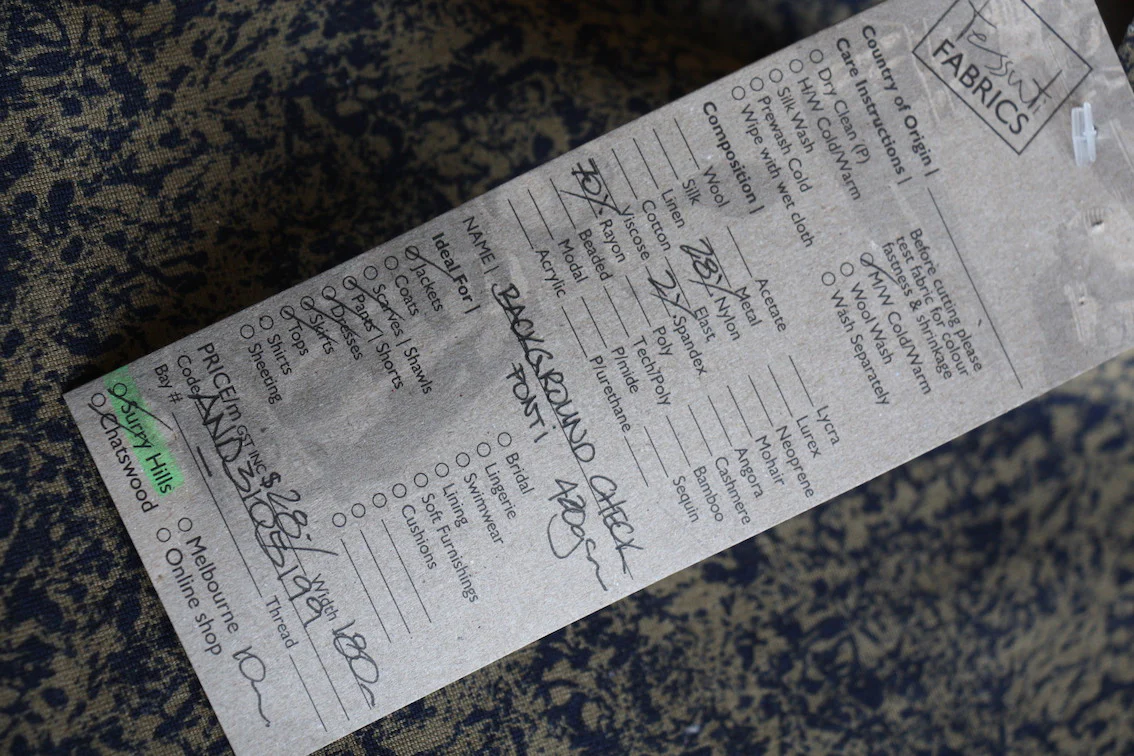 Tessuti
FABRICS
Country of Origin |
Care Instructions |
Dry Clean (P)
H/W Cold/Warm
Silk Wash
Prewash Cold
Wipe with wet cloth
Before cutting please
test fabric for colour
fastness & shrinkage
M/W Cold/Warm
Wool Wash
Wash Separately
Composition |
Wool
Silk
Linen
Cotton
Viscose
70% Rayon
Beaded
Modal
Acrylic
Acetate
Metal
28% Nylon
Elast
2% Spandex
Poly
Tech/Poly
P/mide
P/urethane
Lycra
Lurex
Neoprene
Mohair
Angora
Cashmere
Bamboo
Sequin
NAME | BACKGROUND CHECK
PONTI 420gsm
Ideal For |
Jackets
Coats
Scarves | Shawls
Pants | Shorts
Dresses
Skirts
Tops
Shirts
Sheeting
Bridal
Lingerie
Swimwear
Lining
Soft Furnishings
Cushions
PRICE/m GST INC $28.- Width
Code
Bay # Thread
Surry Hills
Chatswood
Melbourne
Online shop